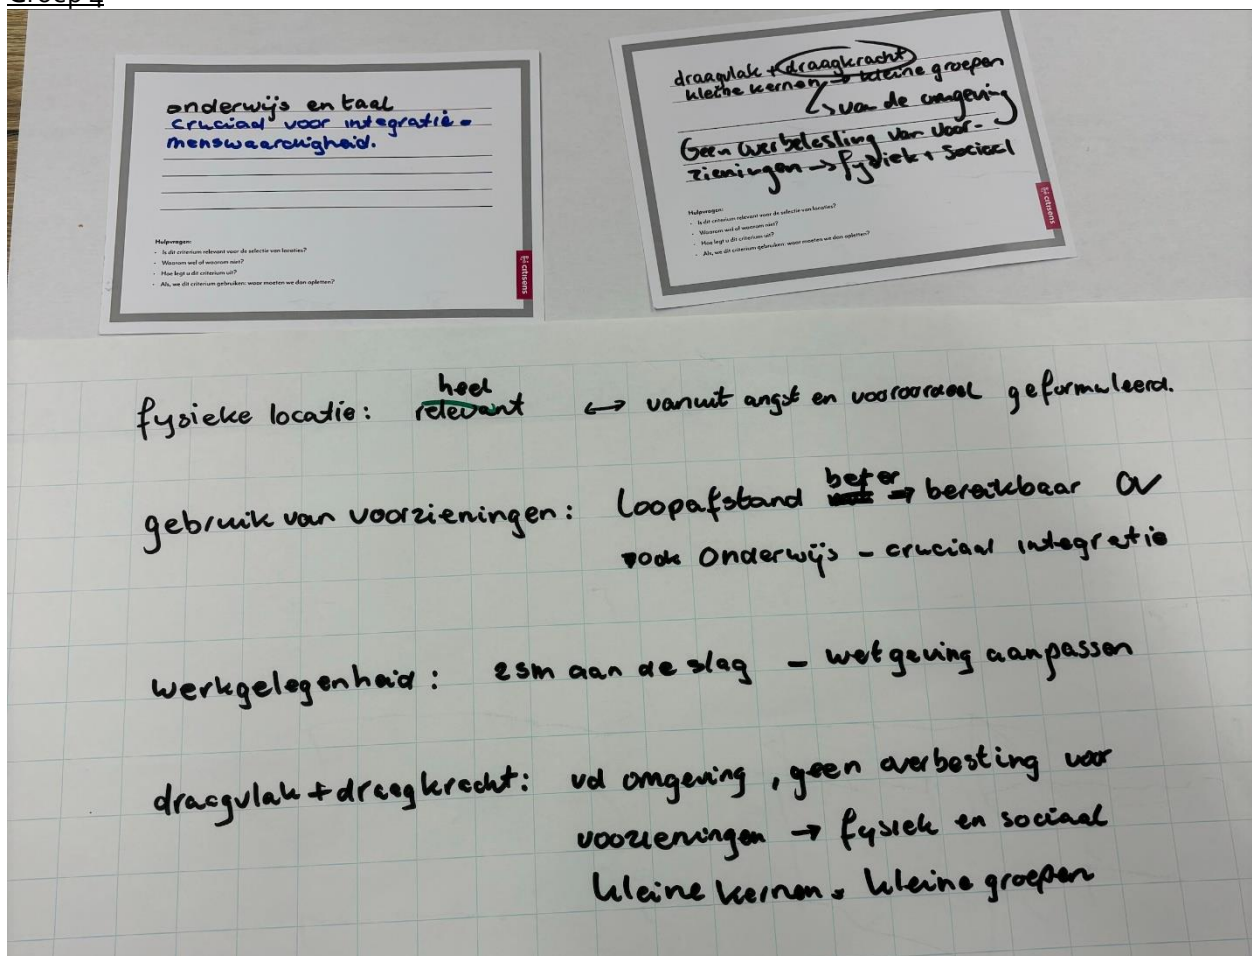 Groep 4
onderwijs en taal
cruciaal voor integratie -
menswaardigheid.
Hulpvragen:
- Is dit criterium relevant voor de selectie van locaties?
- Waarom wel of waarom niet?
- Hoe legt u dit criterium uit?
- Als, we dit criterium gebruiken: waar moeten we dan opletten?
citisens
draagvlak + draagkracht
kleine kernen → kleine groepen
↳ van de omgeving
Geen overbelasting van voor-
zieningen → fysiek + sociaal
Hulpvragen:
- Is dit criterium relevant voor de selectie van locaties?
- Waarom wel of waarom niet?
- Hoe legt u dit criterium uit?
- Als, we dit criterium gebruiken: waar moeten we dan opletten?
citisens
fysieke locatie: heel relevant ↔ vanuit angst en vooroordeel geformuleerd.
gebruik van voorzieningen: Loopafstand beter → bereikbaar OV
ook Onderwijs - cruciaal integratie
werkgelegenheid: zsm aan de slag - wetgeving aanpassen
draagvlak + draagkracht: vd omgeving, geen overbesting voor
voorzieningen → fysiek en sociaal
kleine kernen = kleine groepen